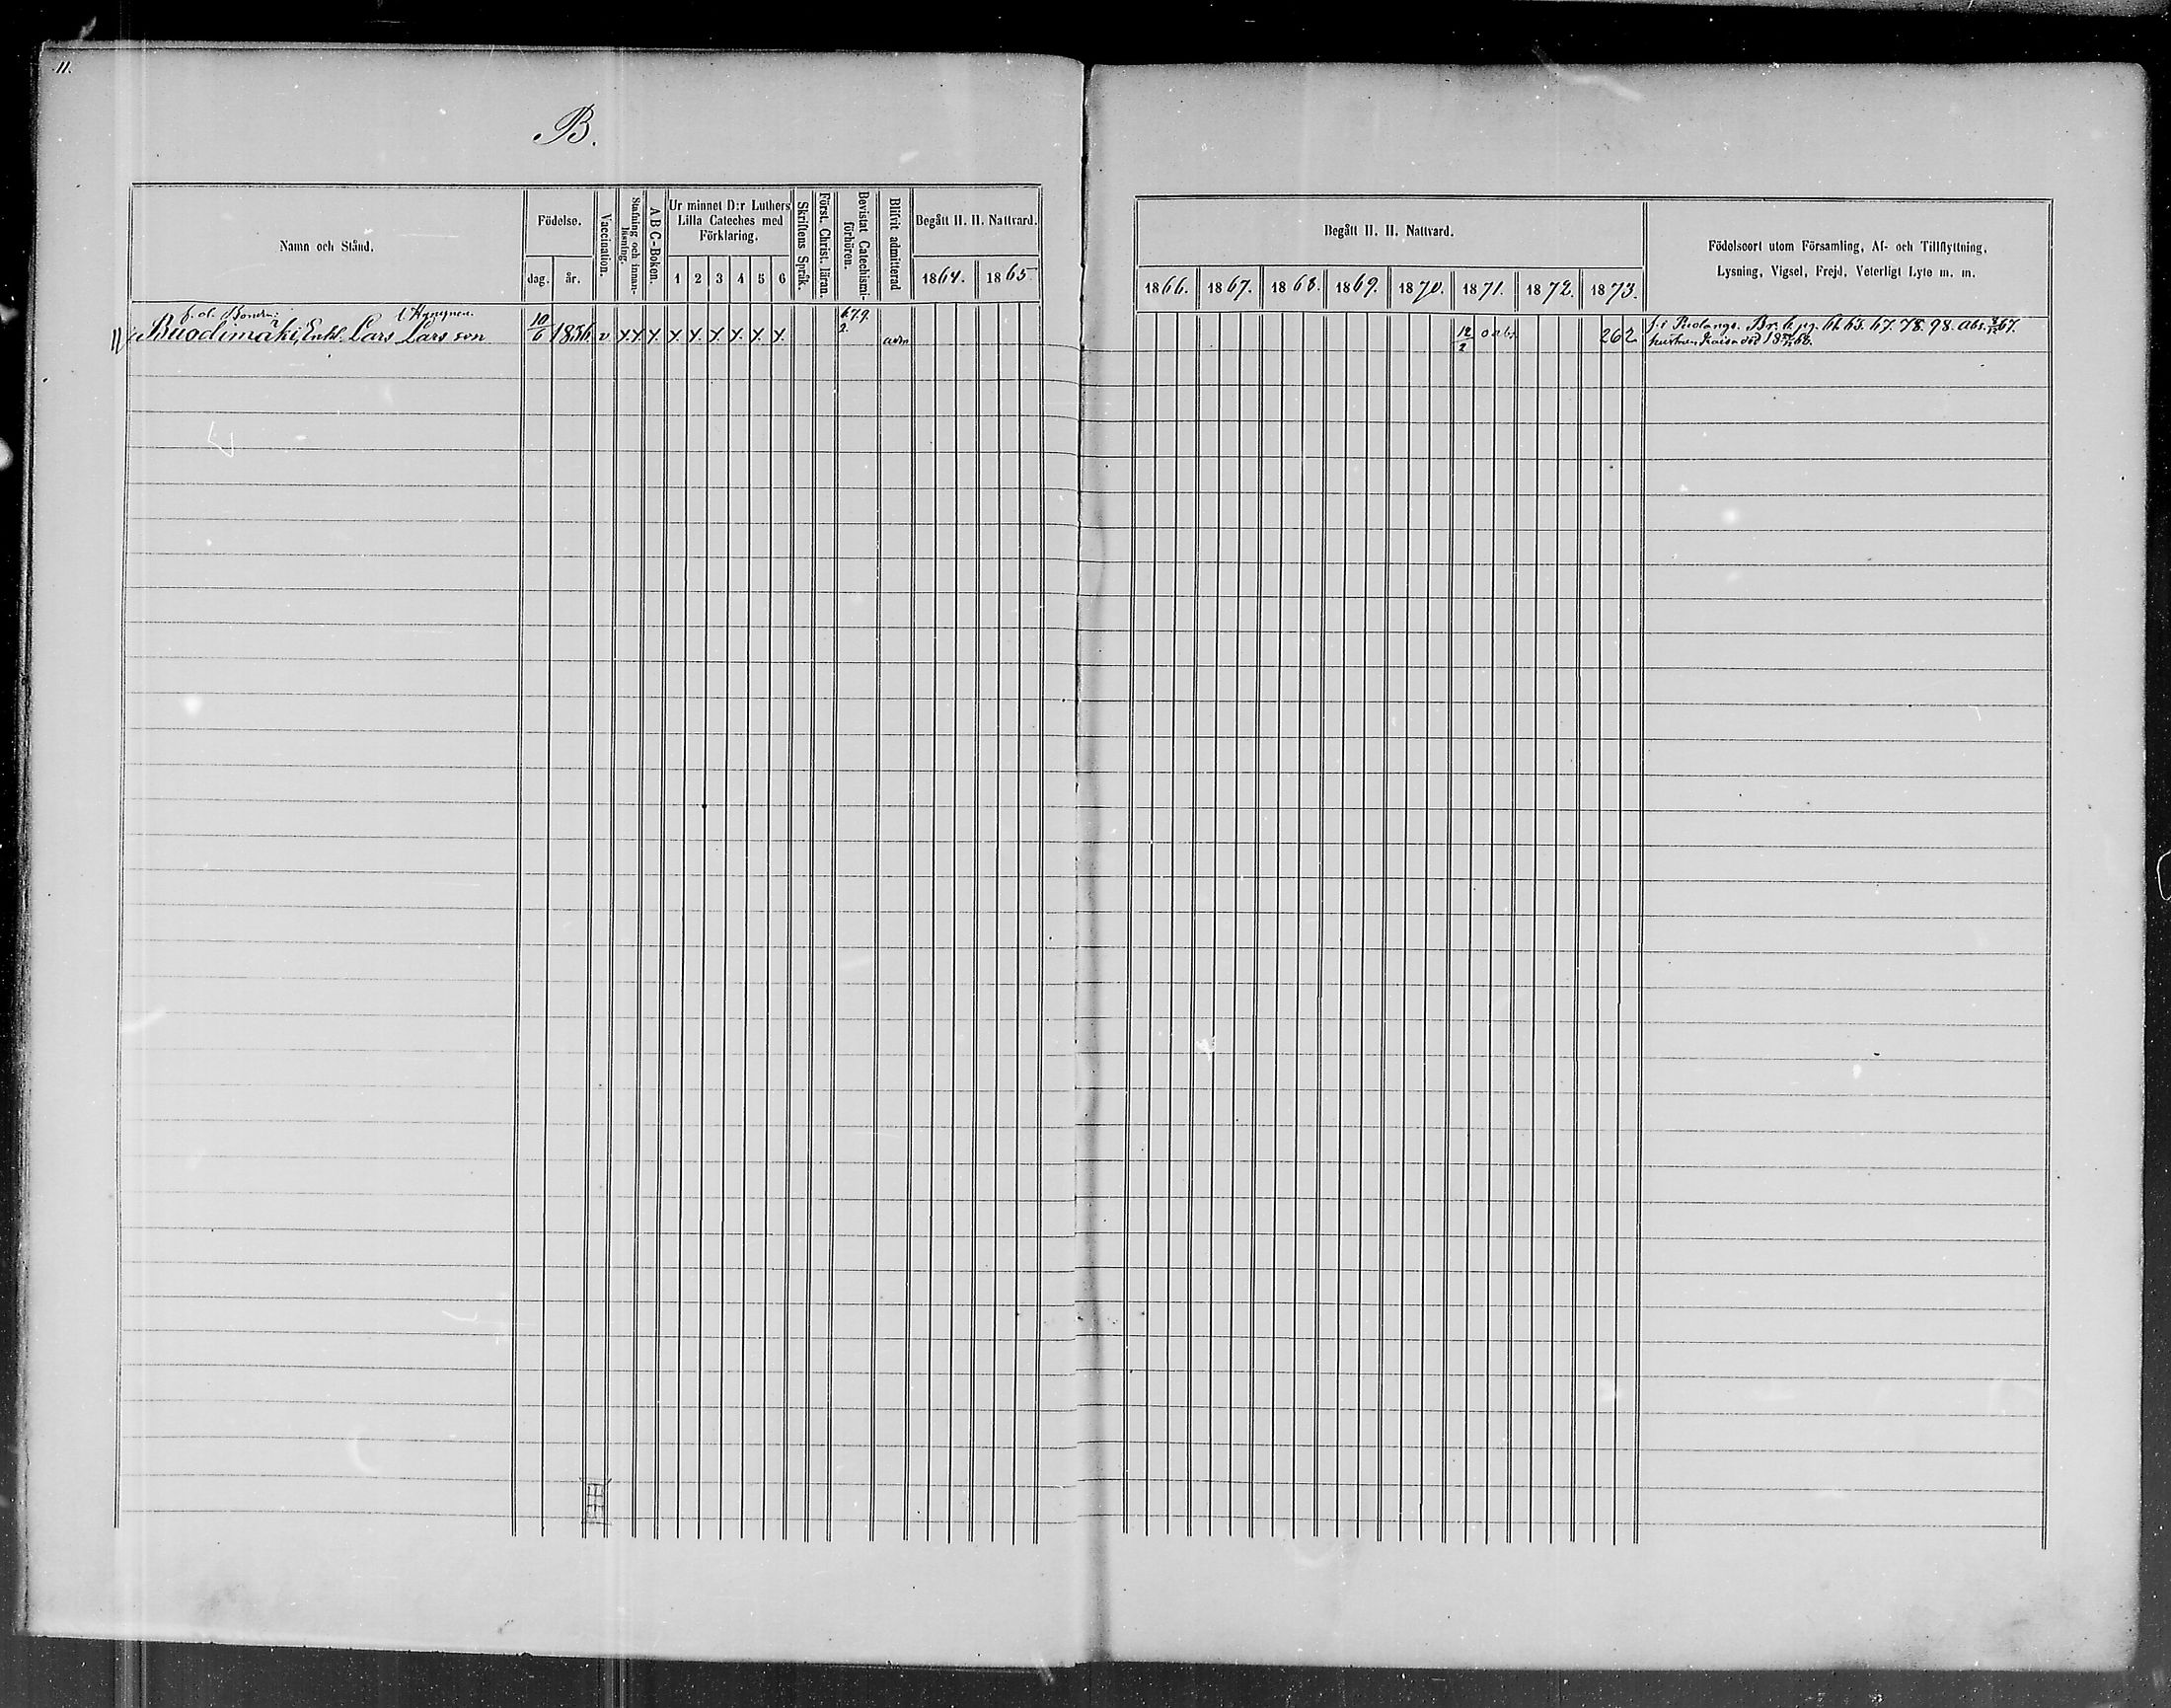 11.
B.
Namn och Stånd.
Födelse.
dag.
år.
Vaccination.
Stafning och innanläsning.
A B C-Boken.
Ur minnet D:r Luthers
Lilla Cateches med
Förklaring.
1 2 3 4 5 6
Skriftens Språk.
Först. Christ. läran.
Bevistat Catechismiförhören.
Blifvit admitterad
Begått H. H. Nattvard.
1864. 1865.
Begått H. H. Nattvard.
1866. 1867. 1868. 1869. 1870. 1871. 1872. 1873.
Födelseort utom Församling, Af- och Tillflyttning,
Lysning, Vigsel, Frejd, Veterligt Lyte m. m.
f. d. Bonden: Hyrynen.
Buodimäki, Enkl. Lars Lars son 10/6 1836. v x x x. x. x. x. x. x. x. 67.9. 2. adm 12/2 262
f. i Puolango. 67. 78. 98. abs. 67.
hustrun Kaisa död 18 68.